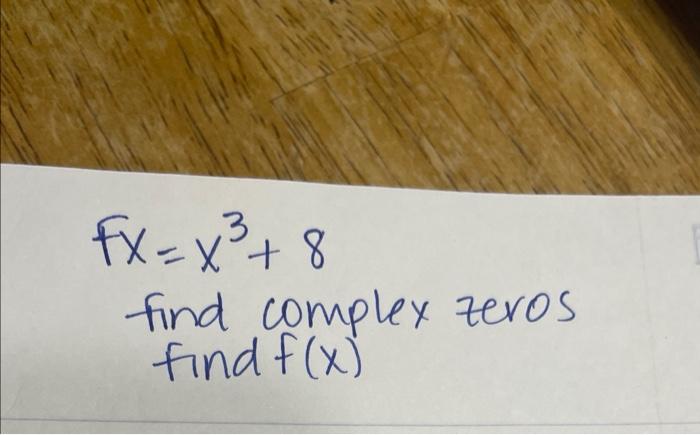 fx = x³ + 8
find complex zeros
find f(x)